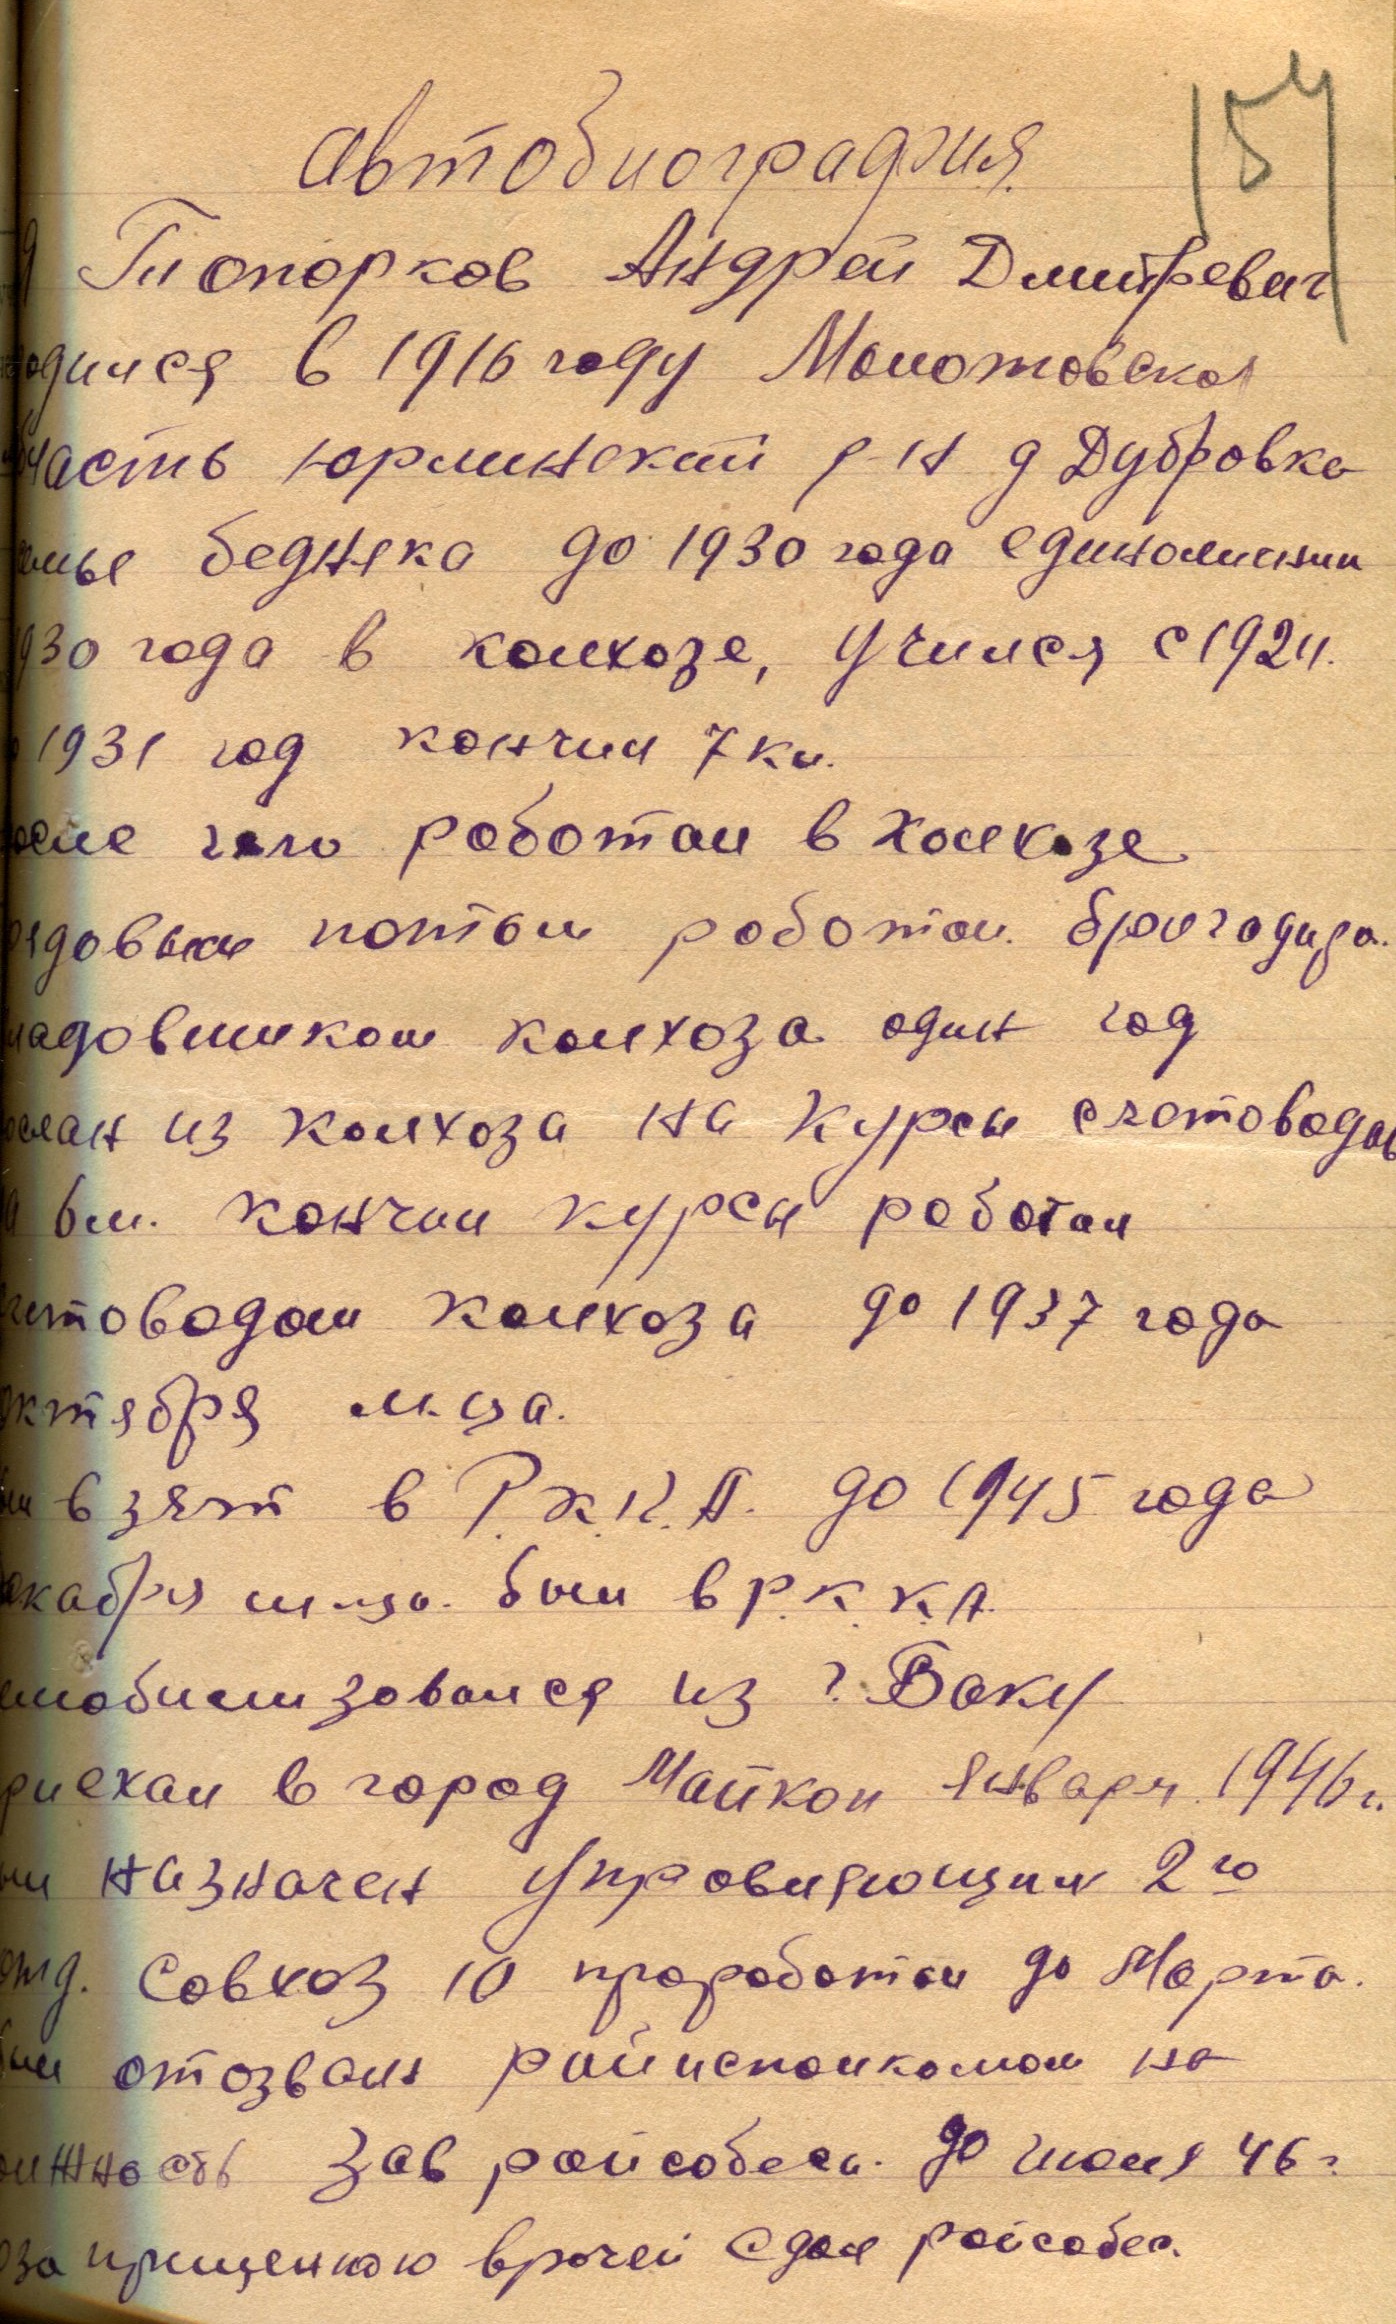 154
автобиография
Я Топорков Андрей Дмитревич
одился в 1916 году Молотовская
область юрлинский р-н д Дубровка
семье бедняка до 1930 года единолични
1930 года в колхозе, учился с 1924.
1931 год кончил 7 кл.
после чего роботал в колхозе
рядовым потом роботал. бригадира.
кладовшиком колхоза один год
послан из колхоза на курсы счетоводов
на 6 м. кончил курсы роботал
счетоводом колхоза до 1937 года
октября м-ца.
взят в Р.К.К.А. до 1945 года
декабря м-ца. был в Р.К.К.А.
емобилизовался из г. Баку
приехал в город Майкоп января 1946 г.
был назначен управляющим 2го
отд. Совхоз 10 проработал до Марта.
был отозван райисполкомом на
олжность зав райсобеса. до июля 46 г
врачей сдал райсобес.